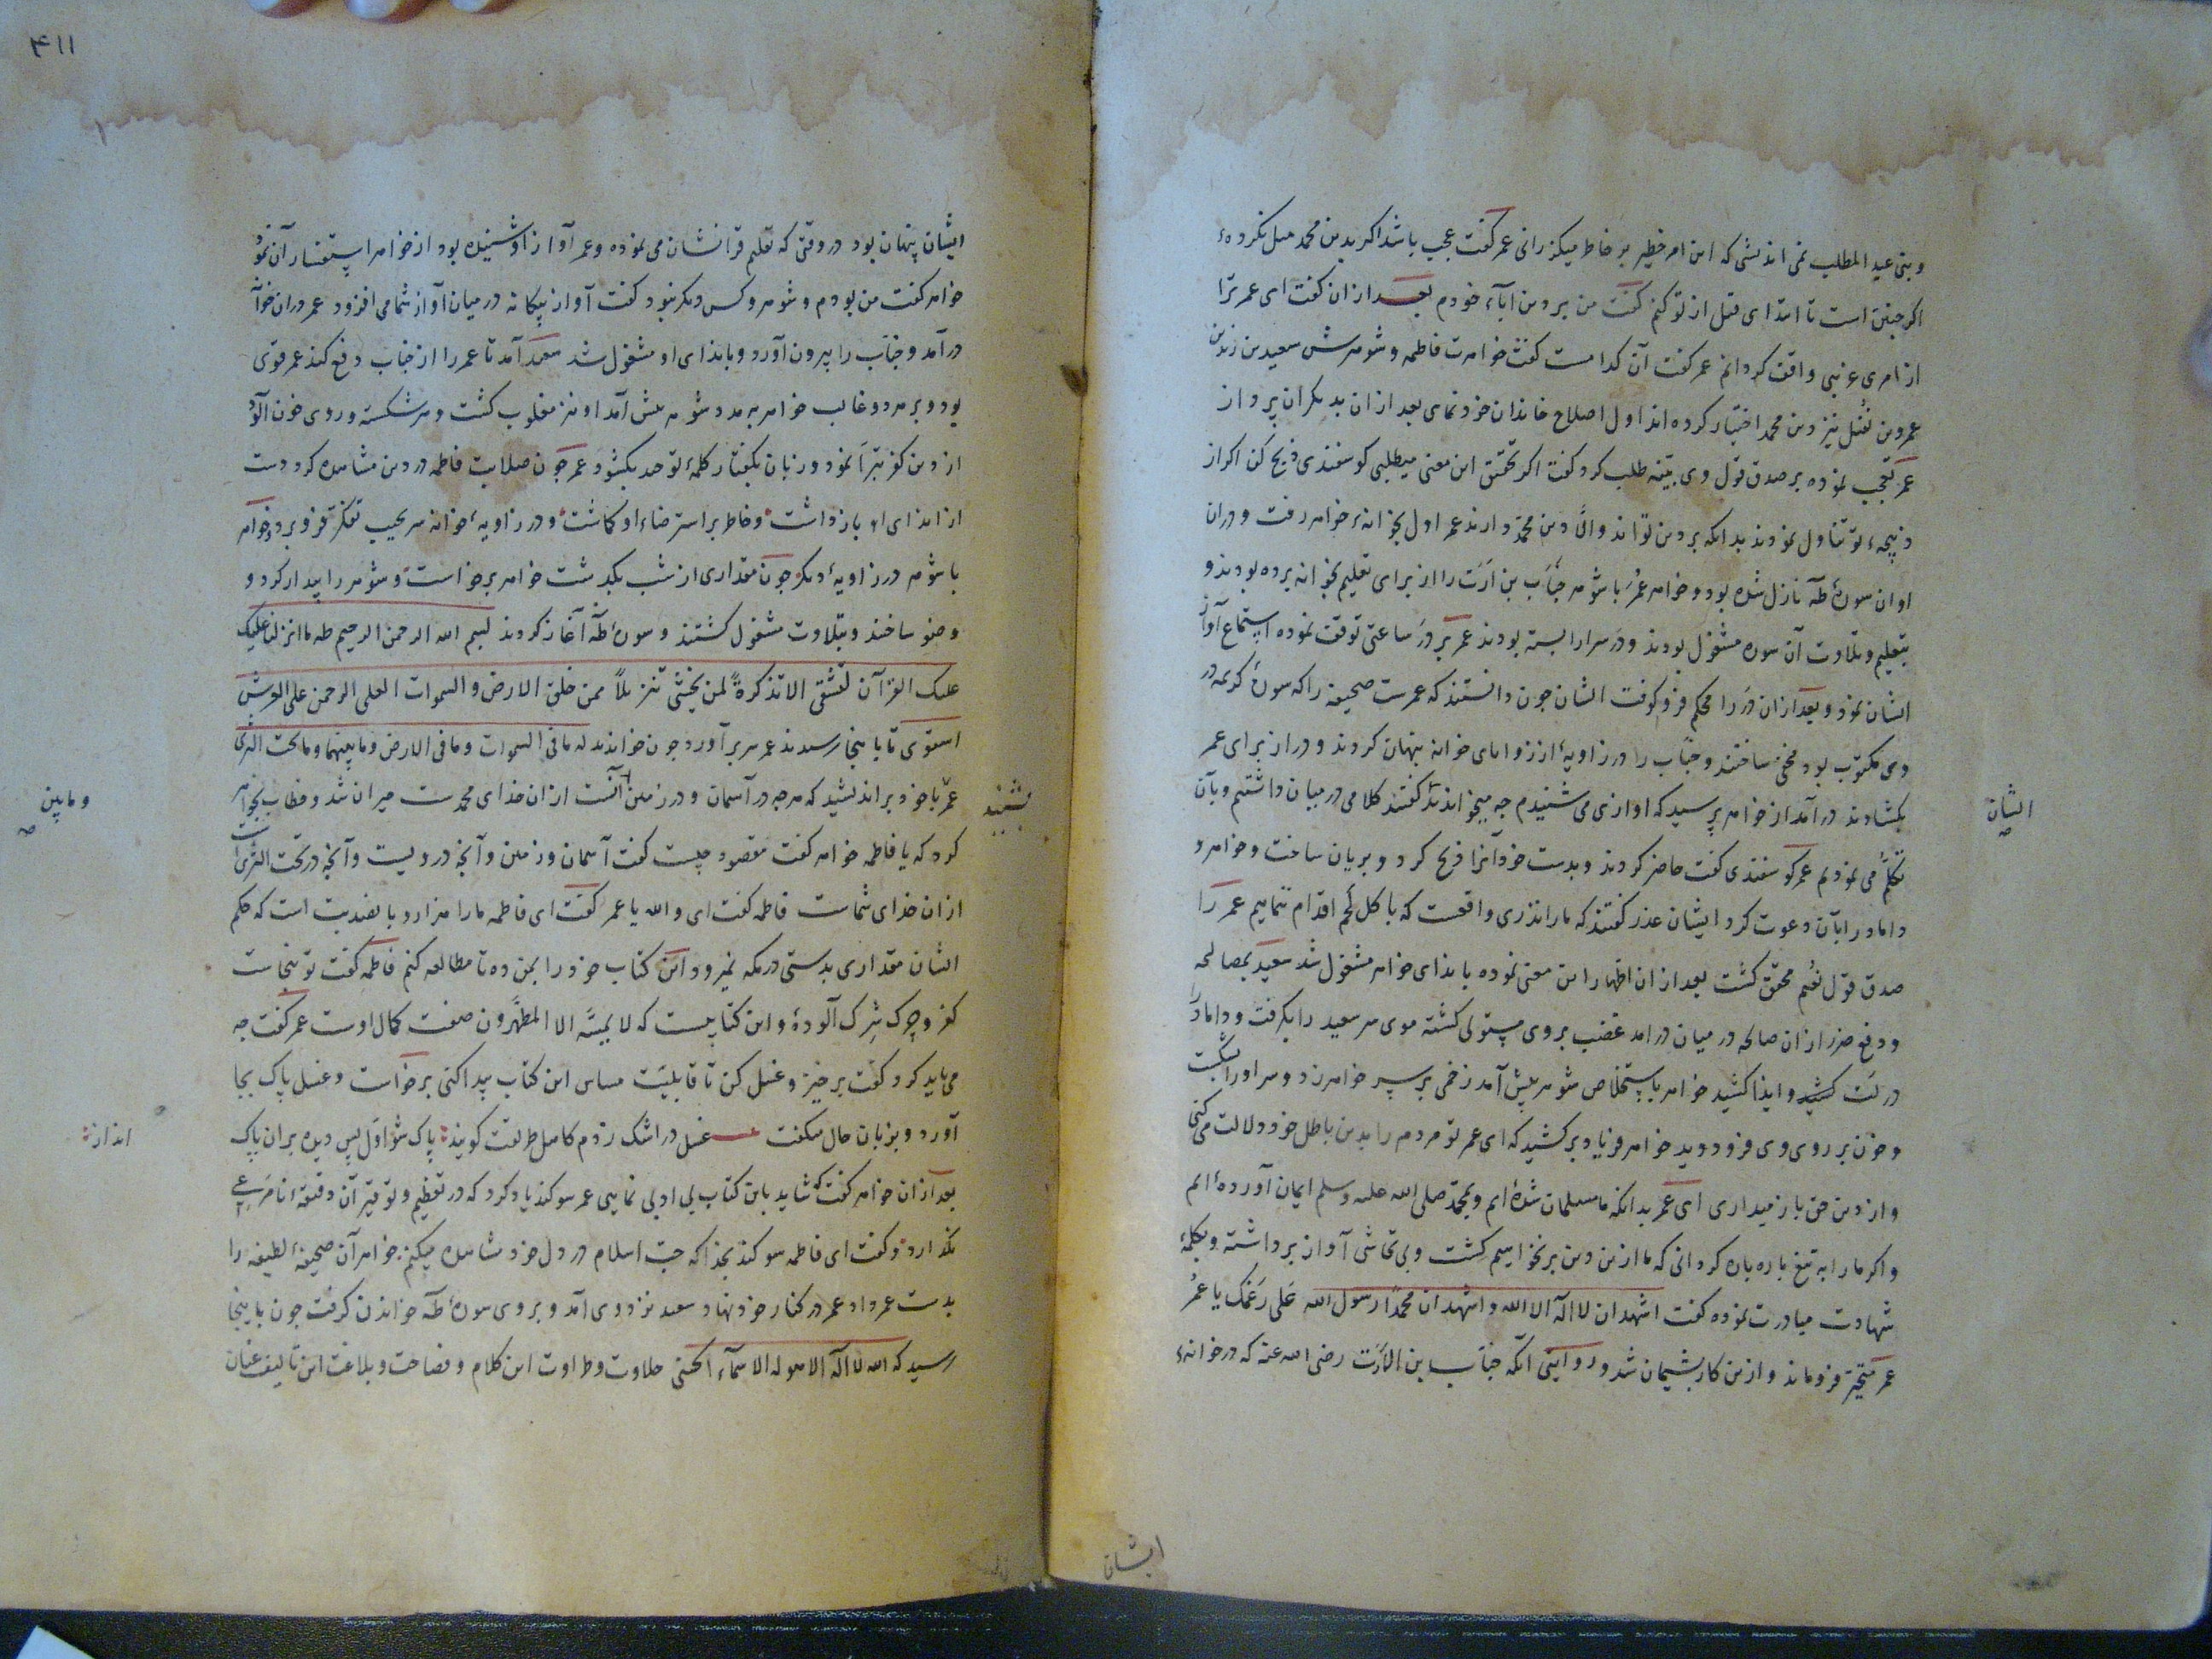 وبنی عبد المطلب نمی اندیشی که این امر خطیر بر خاطر میگذرانی عمر گفت عجب باشد اگر بدین محمد میل نکرده‌ء
اگر چنین است تا ابتدای قتل از تو کنم گفت من بر دین آباء خودم بعد ازان گفت ای عمر ترا
از امری غریبی واقف کردانم عمر گفت آن کدامست گفت خواهرت فاطمه و شوهرش سعید بن زید بن
عمرو بن نفیل نیز دین محمد اختیار کرده اند اول اصلاح خاندان خود نمای بعد ازان بدیگران پرداز
عمر تعجب نموده بر صدق قول وی بینه طلب کرد گفت اگر تحقیق این معنی میطلبی گوسفندی ذبح کن اگر از
ذبیحه‌ء تو تناول نمودند بدانکه بر دین تواند والا دین محمد دارند عمر اول بخانه‌ء خواهر رفت و دران
اوان سوره‌ء طه نازل شده بود و خواهر عمر با شوهر خباب بن ارت را از برای تعلیم بخانه برده بودند و
بتعلیم و تلاوت آن سوره مشغول بودند و در سرا را بسته بودند عمر بر در ساعتی توقف نموده استماع آواز
ایشان نمود و بعد ازان در را محکم فرو کوفت ایشان چون دانستند که عمرست صحیفه را که سوره‌ء کریمه در
وی مکتوب بود مخفی ساختند و خباب را در زاویه‌ء از زوایای خانه پنهان کردند و در از برای عمر
بکشادند درآمد از خواهر پرسید که آوازی می شنیدم چه میخواندند گفتند کلامی در میان داشتیم و بآن
تکلم می نمودیم عمر گوسفندی گفت حاضر کردند و بدست خود آنرا ذبح کرد و بریان ساخت و خواهر و
داماد را بآن دعوت کرد ایشان عذر گفتند که ما را نذری واقعست که باکل لحم اقدام ننماییم عمر را
صدق قول نعیم محقق گشت بعد ازان اظهار این معنی نموده بایذای خواهر مشغول شد سعید بمصالحه
و دفع ضرر ازان صالحه در میان درآمد غضب بر وی مستولی گشته موی سر سعید را بگرفت و داماد را
در لت کشید و ایذا کشید خواهر باستخلاص شوهر پیش آمد زخمی بر سر خواهر زد و سر او را بشکست
و خون بر روی وی فرو دوید خواهر فریاد برکشید که ای عمر تو مردم را بدین باطل خود دلالت می کنی
و از دین حق باز میداری ای عمر بدانکه ما مسلمان شده‌ایم و بمحمد صلی الله علیه وسلم ایمان آورده‌ایم
و اگر ما را به تیغ پاره پاره گردانی که ما ازین دین برنخواهیم گشت و بی تحاشی آواز برداشته و بکلمه‌ء
شهادت مبادرت نموده گفت اشهد ان لا اله الا الله و اشهد ان محمدا رسول الله علی رغمک یا عمر
عمر متحیر فرو ماند و ازین کار پشیمان شد و روایتی آنکه خباب بن الارت رضی الله عنه که در خانه‌ء
ایشان
ایشان
۴۱۱
ایشان پنهان بود در وقتی که تعلیم قرآنشان می نموده و عمر آواز او شنیده بود از خواهر استفسار آن نمود
خواهر گفت من بودم و شوهر و کس دیگر نبود گفت آواز بیگانه در میان آواز شما می افزود عمر دران خوا
درآمد و خباب را بیرون آورد و بایذای او مشغول شد سعید آمد تا عمر را از خباب دفع کند عمر قوی
بود و بر هر دو غالب خواهر به مدد شوهر پیش آمد او نیز مغلوب گشت و سر شکسته و روی خون آلود
از دین کفر تبرا نمود و زبان بگفتار کلمه‌ء توحید بکشود عمر چون صلابت فاطمه در دین مشاهده کرد دست
از ایذای او باز داشت و خاطر بر استرضاء او گماشت و در زاویه‌ء خانه سر بجیب تفکر فرو برد و خواهر
با شوهر در زاویه‌ء دیگر چون مقداری از شب بگذشت خواهر برخاست و شوهر را بیدار کرد و
وضو ساختند و بتلاوت مشغول گشتند و سوره‌ء طه آغاز کردند بسم الله الرحمن الرحیم طه ما انزلنا علیک
علیک القرآن لتشقی الا تذکرة لمن یخشی تنزیلا ممن خلق الارض و السموات العلی الرحمن علی العرش
استوی تا باینجا رسیدند عمر سر برآورد چون خواندند له ما فی السموات و ما فی الارض و ما بینهما و ما تحت الثری
عمر با خود براندیشید که هر چه در آسمان و در زمین آنست ازان خدای محمدست حیران شد و خطاب بخواهر
کرد که یا فاطمه خواهر گفت مقصود چیست گفت آسمان و زمین و آنچه درویست و آنچه در تحت الثری است
ازان خدای شماست فاطمه گفت ای والله یا عمر گفت ای فاطمه ما را هزار و پانصد بت است که حکم
ایشان مقداری بدستی در مکه نمیرود این کتاب خود را بمن ده تا مطالعه کنم فاطمه گفت تو بنجاست
کفر و چرک شرک آلوده‌ء و این کتابیست که لا یمسه الا المطهرون صفت کمال اوست عمر گفت چه
می باید کرد گفت برخیز و غسل کن تا قابلیت مساس این کتاب پیدا کنی برخاست و غسل پاک بجا
آورد و بزبان حال میگفت غسل در اشک زدم کاهل طریقت گویند پاک شو اول پس دیده بران پاک
بعد ازان خواهر گفت که شاید باین کتاب بی ادبی نمایی عمر سوگند یاد کرد که در تعظیم و توقیر آن دقیقه نامرعی
نگذارد و گفت ای فاطمه سوگند بخدا که حب اسلام در دل خود مشاهده میکنم خواهر آن صحیفه‌ء لطیفه را
بدست عمر داد عمر در کنار خود نهاد و سعید نزد وی آمد و بر وی سوره‌ء طه خواندن گرفت چون باینجا
رسید که الله لا اله الا هو له الاسماء الحسنی حلاوت و طراوت این کلام و فصاحت و بلاغت این تالیف عنان
بشنید
و مابین
انداز